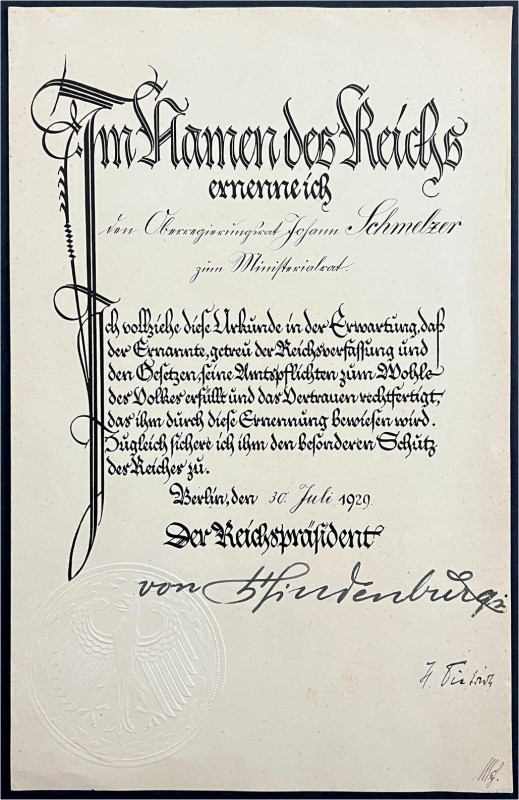 Im Namen des Reichs
ernenne ich
den Oberregierungsrat Johann Schmelzer
zum Ministerialrat.
Ich vollziehe diese Urkunde in der Erwartung, daß
der Ernannte, getreu der Reichsverfassung und
den Gesetzen, seine Amtspflichten zum Wohle
des Volkes erfüllt und das Vertrauen rechtfertigt,
das ihm durch diese Ernennung bewiesen wird.
Zugleich sichere ich ihm den besonderen Schutz
des Reiches zu.
Berlin, den 30. Juli 1929.
Der Reichspräsident
von Hindenburg
H. Dietrich